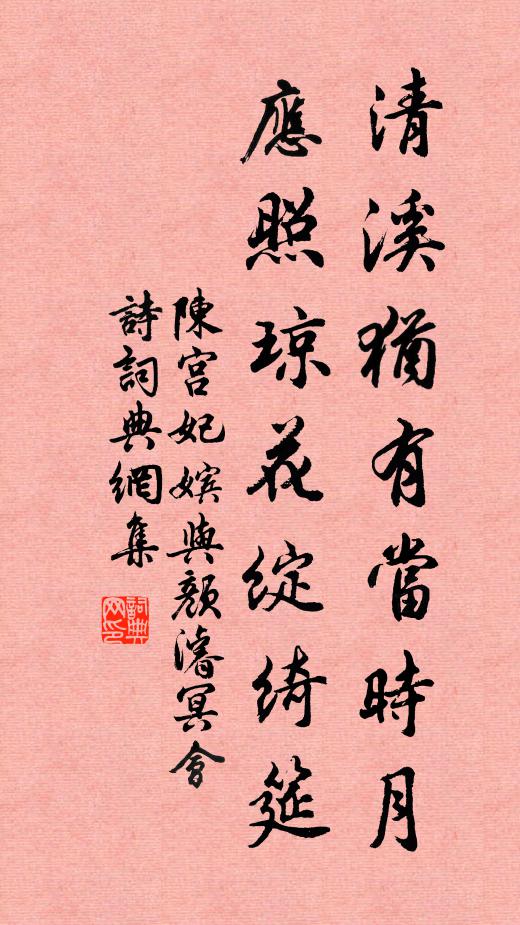 清溪猶有當時月
應照琼花綻綺筵
陳宮妃嬪與顔濬冥會
詩詞典網集
詞典网印